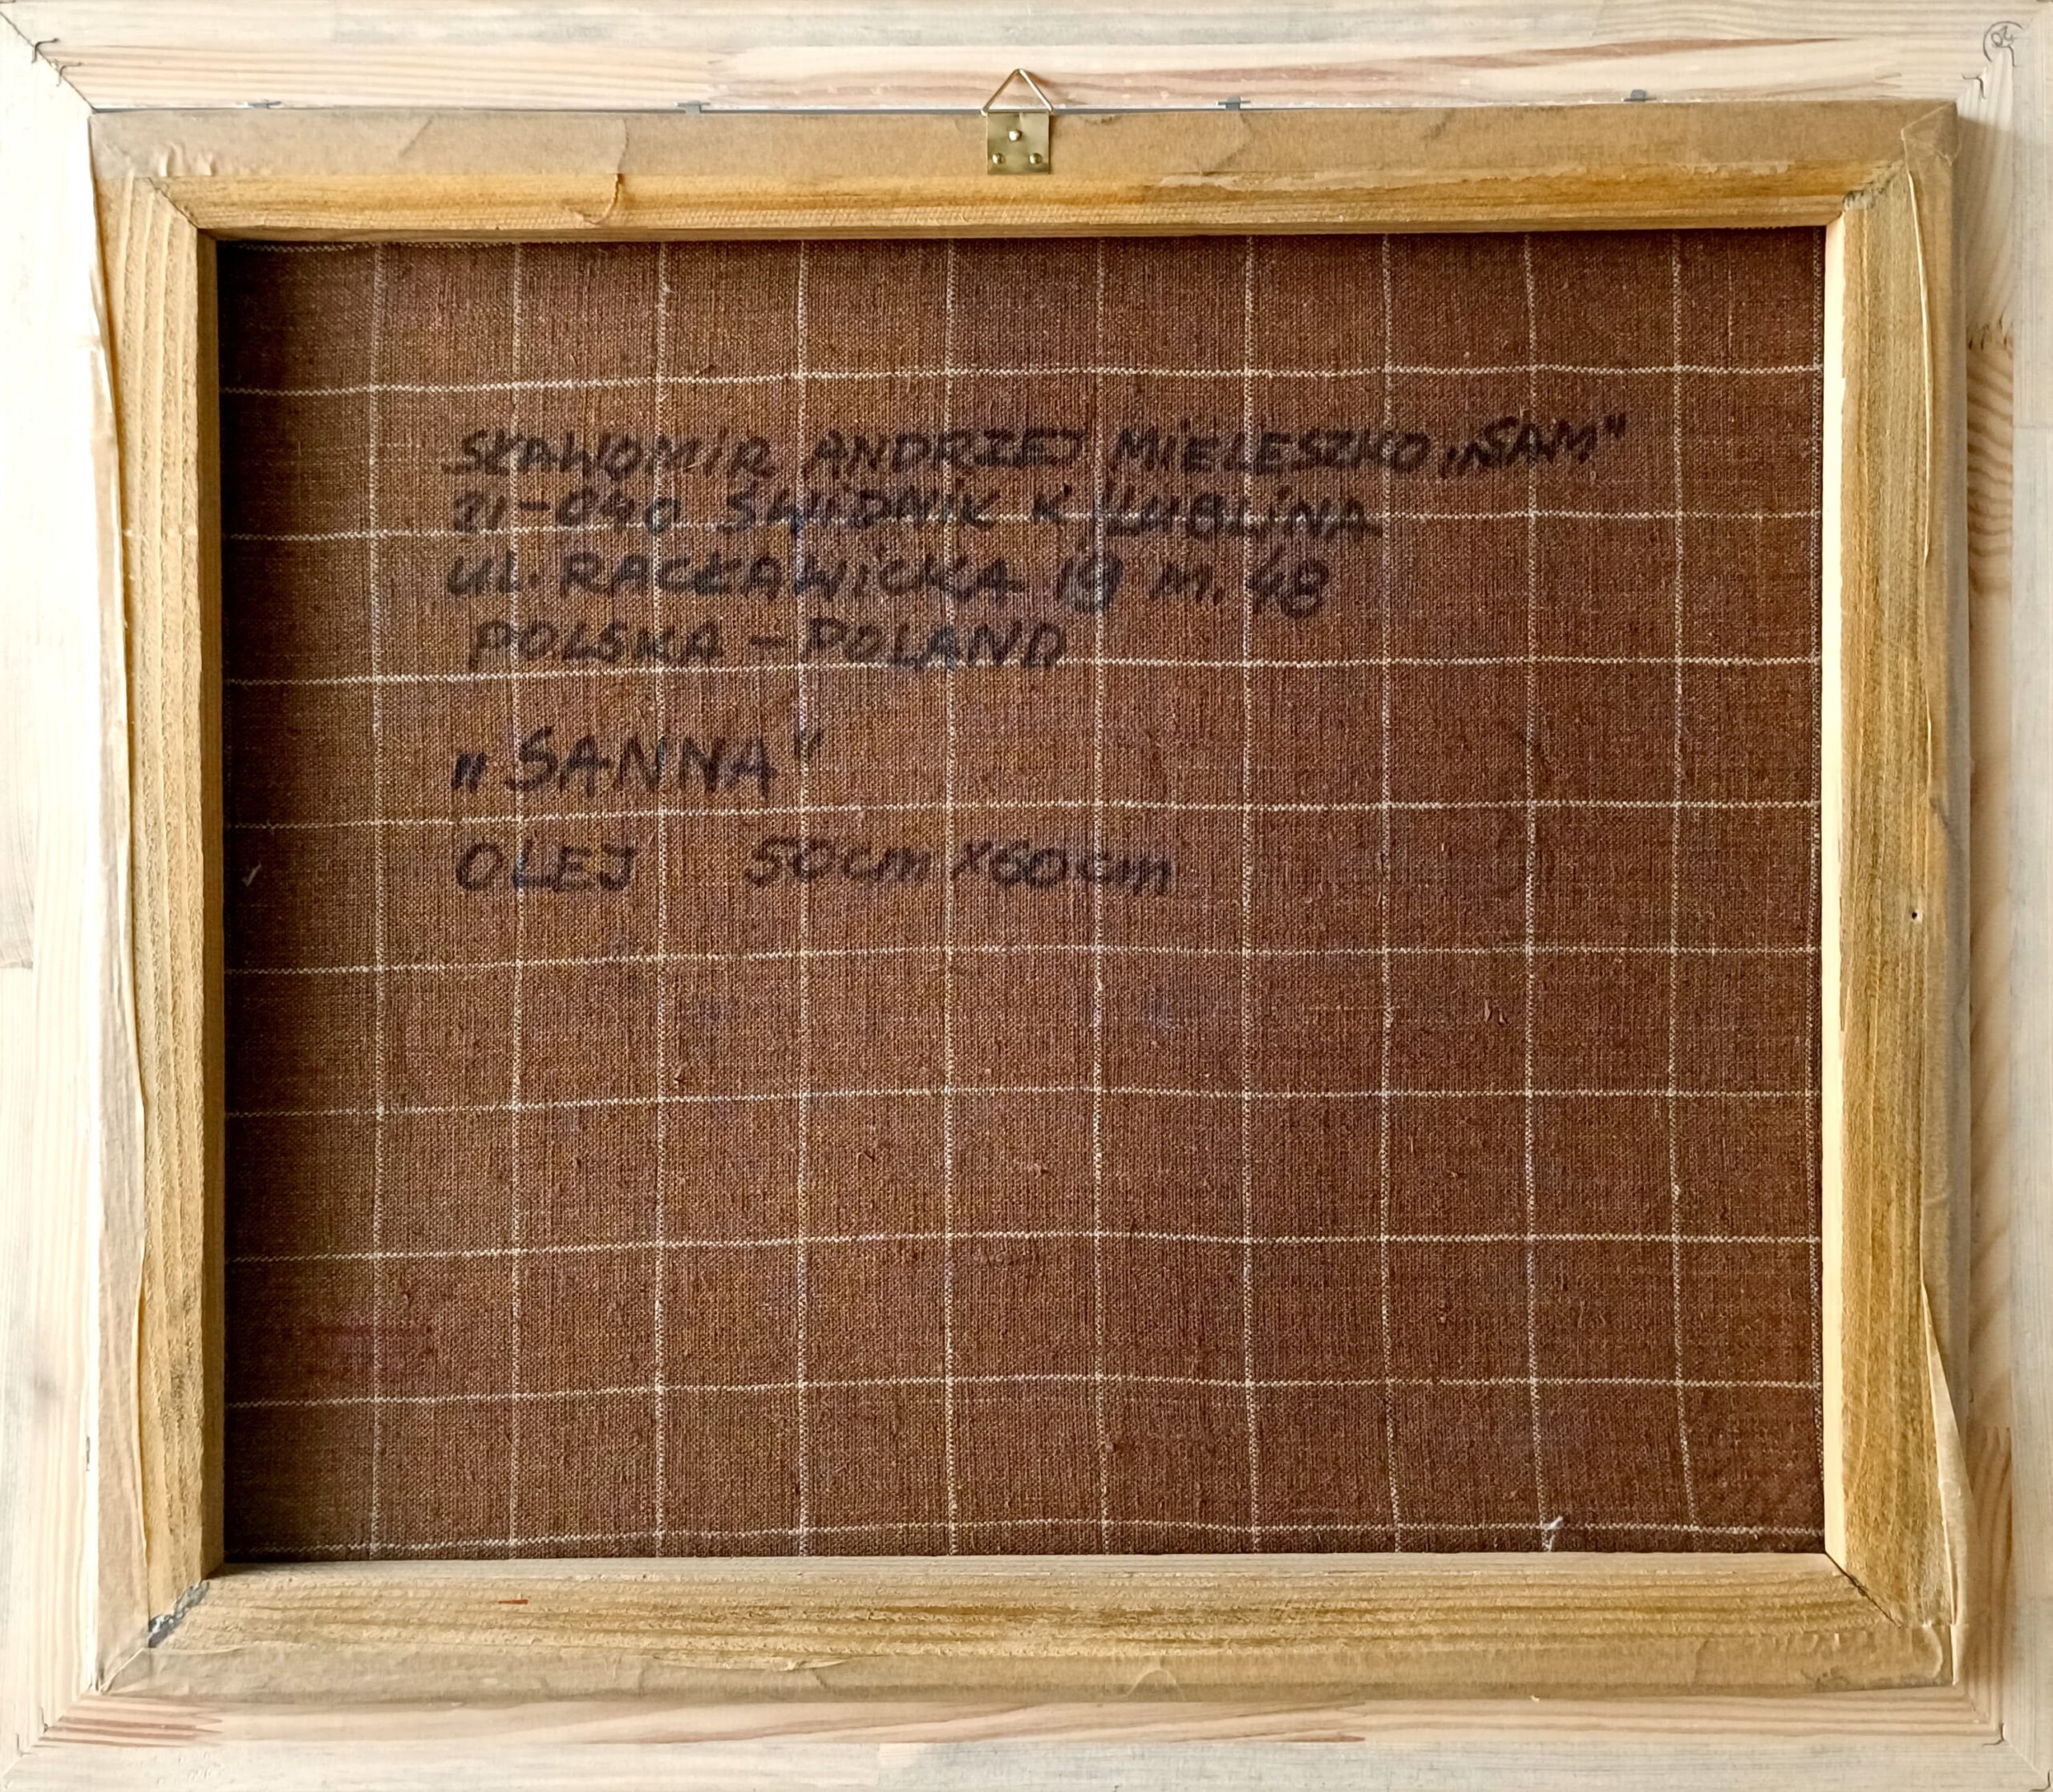 SŁAWOMiR ANDRZEJ MiELESZKO „SAM"
21-040 ŚWiDNiK K/LUBLiNA
UL. RACŁAWiCKA 19 M. 48
POLSKA - POLAND
„SANNA"
OLEJ 50cm X60cm
20